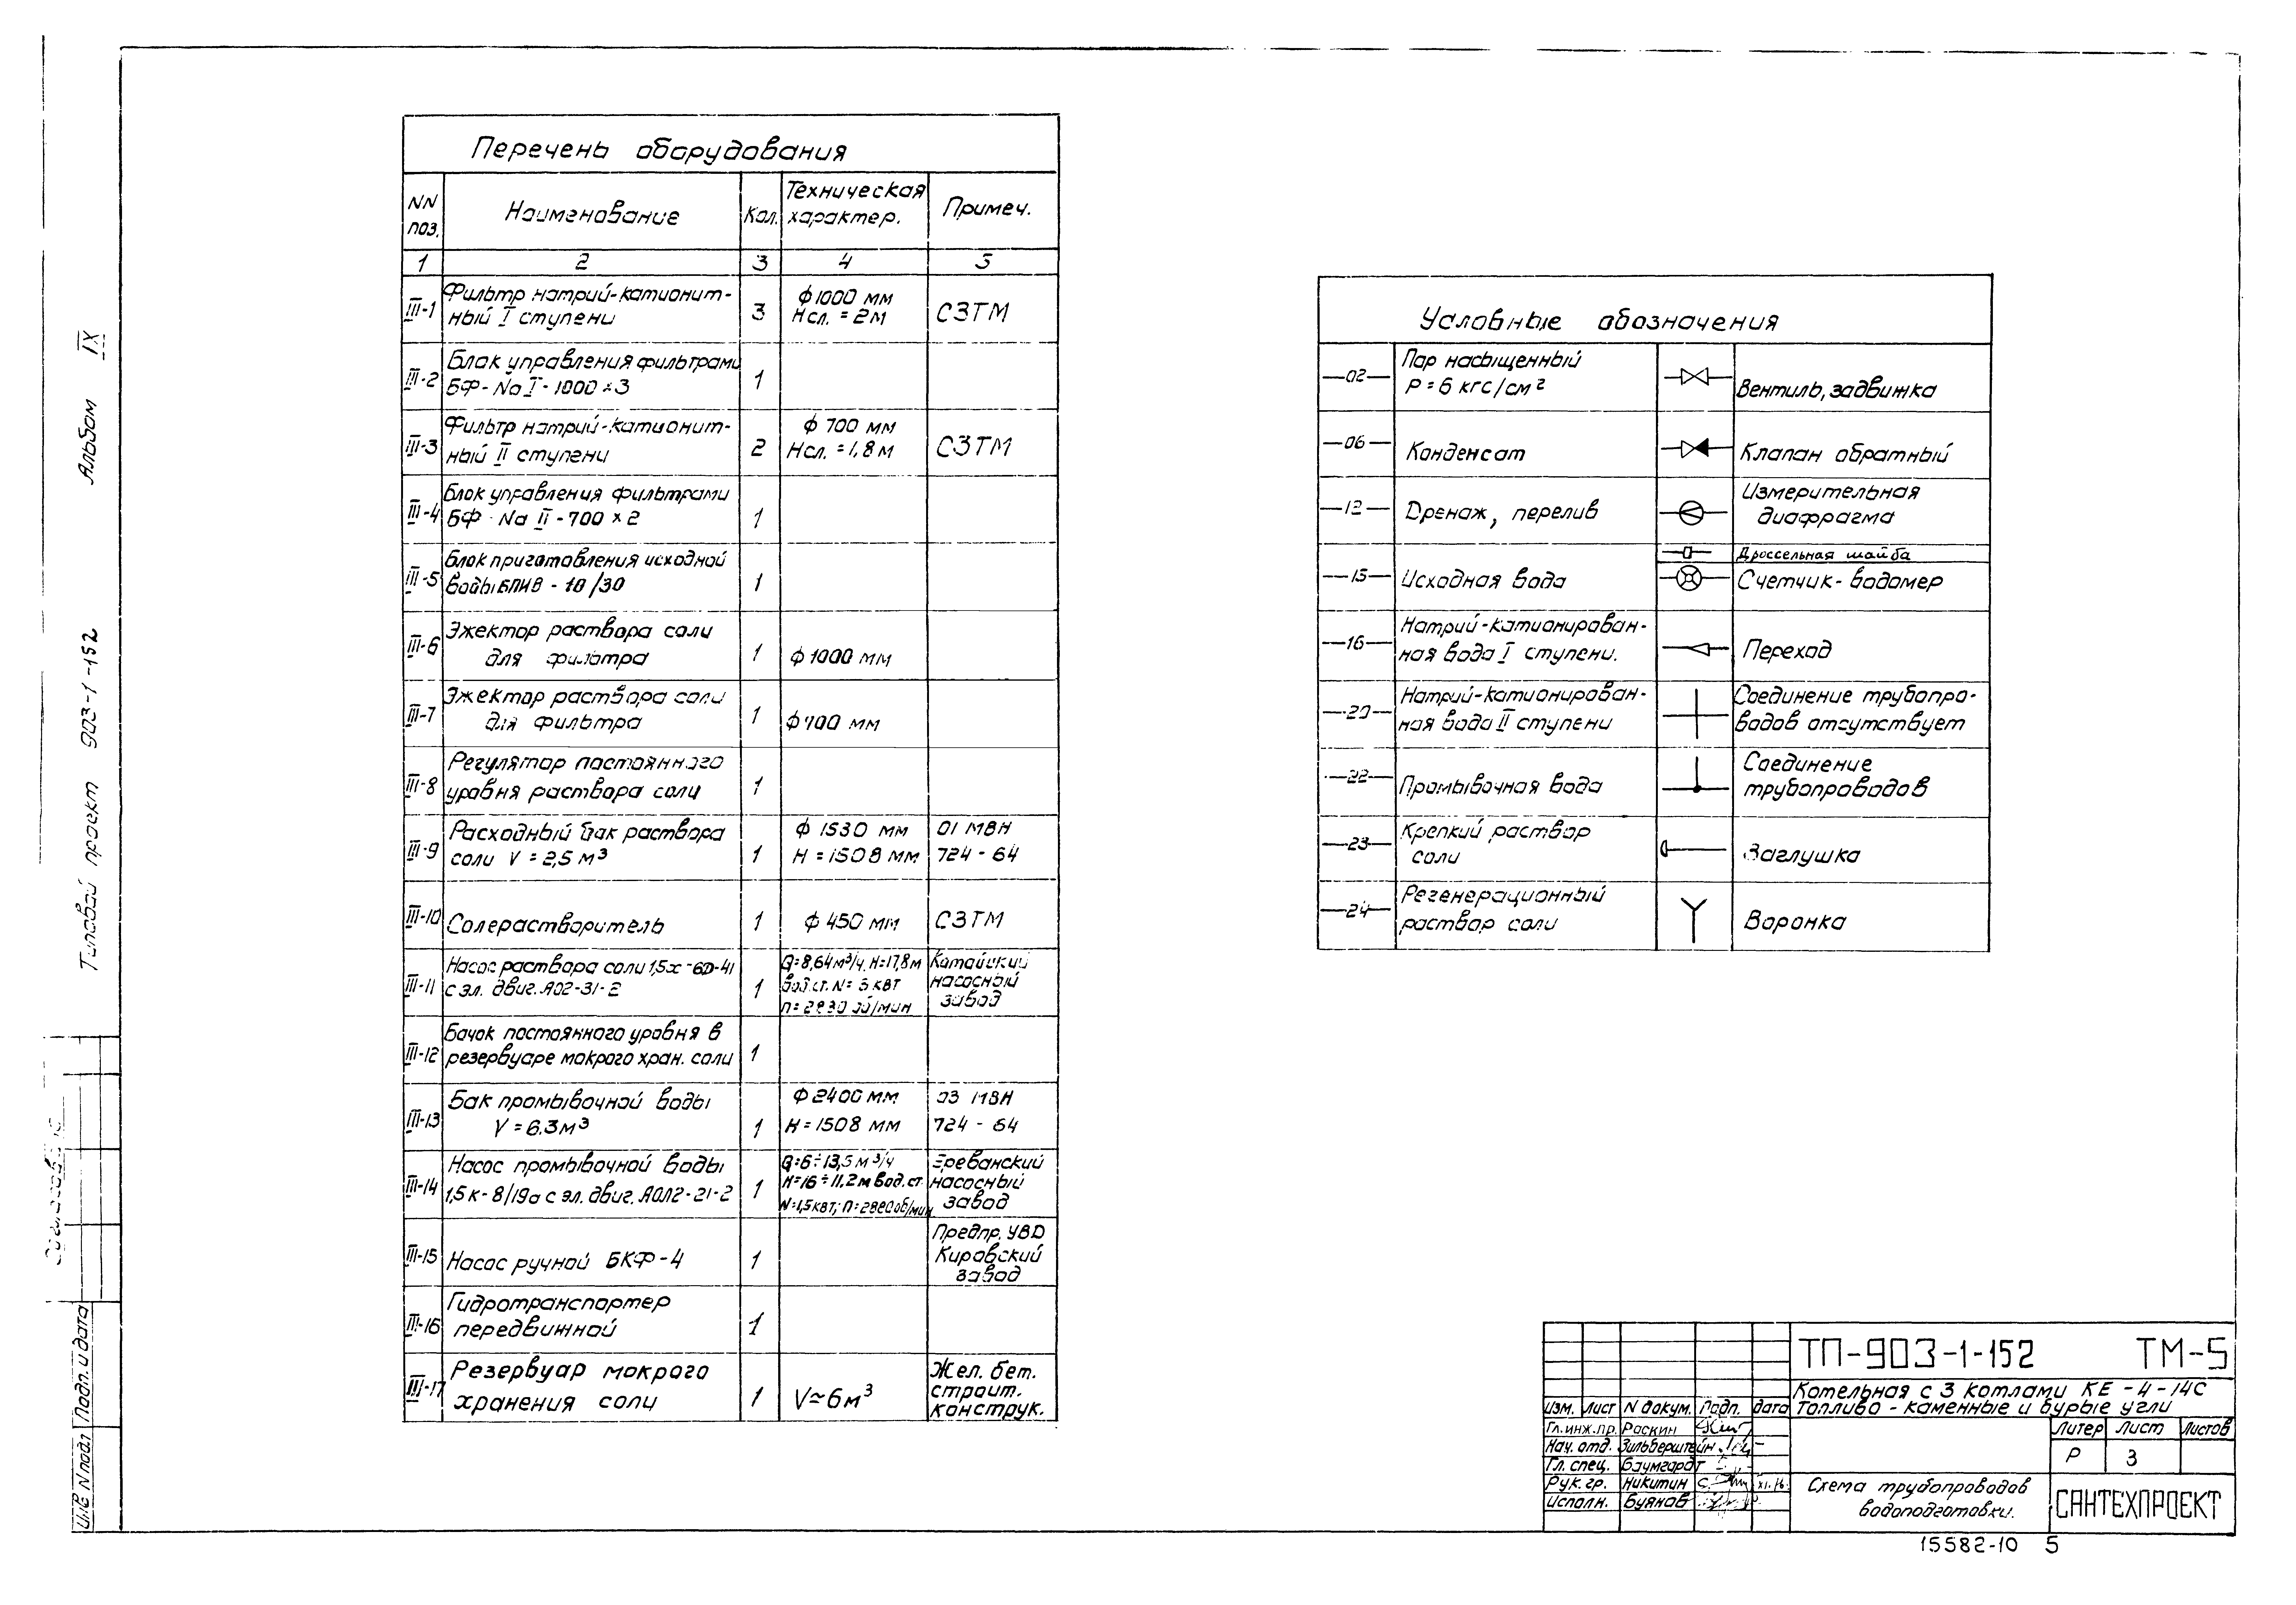 Альбом IX
Типовой проект 903-1-152
Подп. и дата
Инв N подл
Перечень оборудования
NN поз.
Наименование
Кол.
Техническая характер.
Примеч.
1 2 3 4 5
III-1 Фильтр натрий-катионит- 3 ф1000 мм СЗТМ
ный I ступени Нсл. = 2м
III-2 Блок управления фильтрами 1
БФ-Na I-1000×3
III-3 Фильтр натрий-катионит- 2 ф 700 мм СЗТМ
ный II ступени Нсл. = 1,8м
III-4 Блок управления фильтрами 1
БФ-Na II-700×2
III-5 Блок приготовления исходной 1
воды БПИВ - 10/30
III-6 Эжектор раствора соли 1 ф1000 мм
для фильтра
III-7 Эжектор раствора соли 1 ф700 мм
для фильтра
III-8 Регулятор постоянного 1
уровня раствора соли
III-9 Расходный бак раствора 1 ф 1530 мм 01 МВН
соли V = 2,5 м³ Н = 1508 мм 724-64
III-10 Солерастворитель 1 ф 450 мм СЗТМ
III-11 Насос раствора соли 1,5х-6D-41 1 Q=8,64м³/ч, Н=17,8м Катайский
с эл. двиг. АО2-31-2 вод.ст. N= 3 квт насосный
n= 2830 об/мин завод
III-12 Бачок постоянного уровня в 1
резервуаре мокрого хран. соли
III-13 Бак промывочной воды 1 ф 2400 мм 03 МВН
V = 6.3м³ Н = 1508 мм 724-64
III-14 Насос промывочной воды 1 Q=6÷13,5 м³/ч Ереванский
1,5к-8/19а с эл. двиг. АОЛ2-21-2 Н=16÷11,2м вод.ст. насосный
N=1,5квт; n=2880об/мин завод
III-15 Насос ручной БКФ-4 1 Предпр. УВD
Кировский
завод
III-16 Гидротранспортер 1
передвижной
III-17 Резервуар мокрого 1 V≃6м³ Жел. бет.
хранения соли строит.
конструк.
Условные обозначения
—02— Пар насыщенный
Р = 6 кгс/см² Вентиль, задвижка
—06— Конденсат Клапан обратный
—12— Дренаж, перелив Измерительная
диафрагма
Дроссельная шайба
—15— Исходная вода Счетчик-водомер
—16— Натрий-катионирован-
ная вода I ступени. Переход
—20— Натрий-катионирован- Соединение трубопро-
ная вода II ступени водов отсутствует
—22— Промывочная вода Соединение
трубопроводов
—23— Крепкий раствор
соли Заглушка
—24— Регенерационный
раствор соли Воронка
ТП-903-1-152 ТМ-5
Котельная с 3 котлами КЕ-4-14С
Топливо - каменные и бурые угли
Изм. Лист N докум. Подп. Дата
Гл.инж.пр. Раскин
Нач. отд. Зильберштейн
Гл. спец. Баумгардт
Рук. гр. Никитин
Исполн. Буянов
Литер Лист Листов
Р 3
Схема трубопроводов
водоподготовки.
САНТЕХПРОЕКТ
15582-10 5